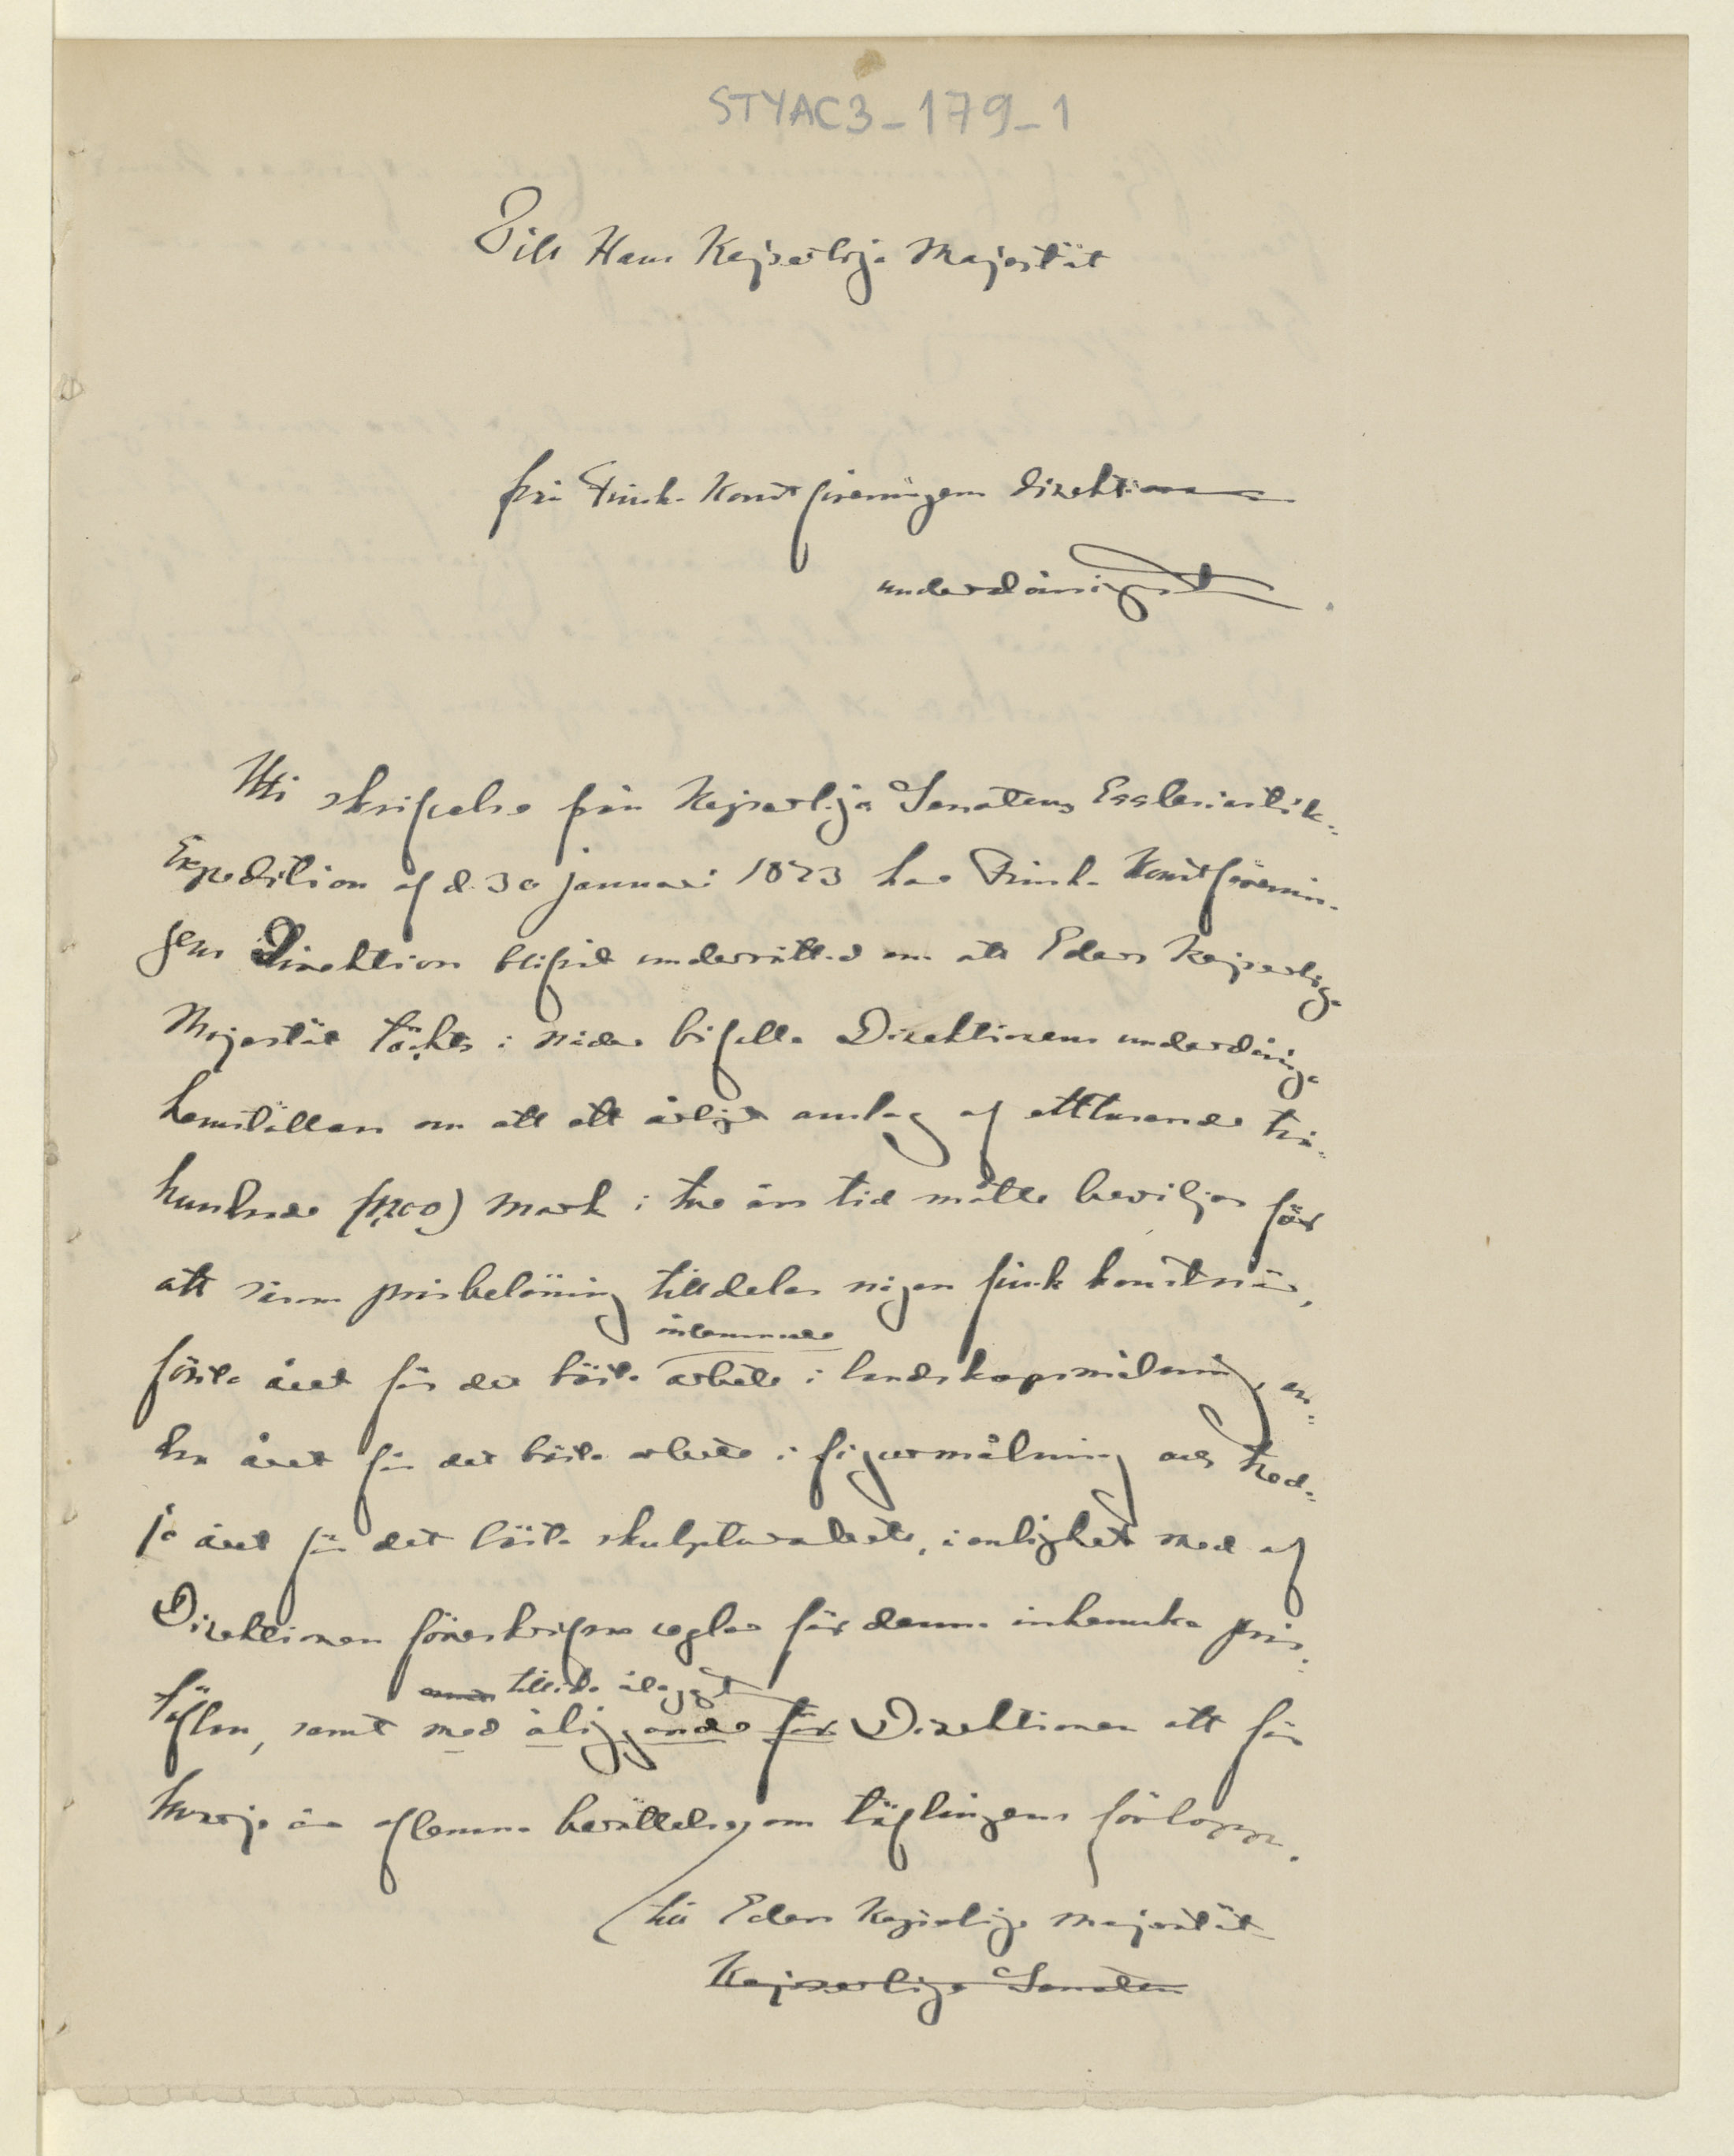 STYAC3-179-1
Till Hans Kejserliga Majestät
från Finska Konstföreningens Direktion
underdånigst
Uti skrifvelse från Kejserliga Senatens Ecclesiastik-
Expedition af d. 30 januari 1873 har Finska Konstförenin-
gens Direktion blifvit underrättad om att Eders Kejserliga
Majestät täckts i nåder bifalla Direktionens underdåniga
hemställan om att ett årligt anslag af ettusende två-
hundrade (1,200) mark i tre års tid måtte beviljas för
att såsom prisbelöning tilldelas någon finsk konstnär,
inlemnade
första året för det bästa arbete i landskapsmålning, an-
dra året för det bästa arbete i figurmålning och tred-
je året för det bästa skulpturarbete, i enlighet med af
Direktionen föreskrifna reglor för denna inhemska pris-
tillika ålagdt
täflan, samt med åliggande för Direktionen att för
hvarje år aflemna berättelse om täflingens förlopp.
till Eders Kejserliga Majestät
Kejserliga Senaten